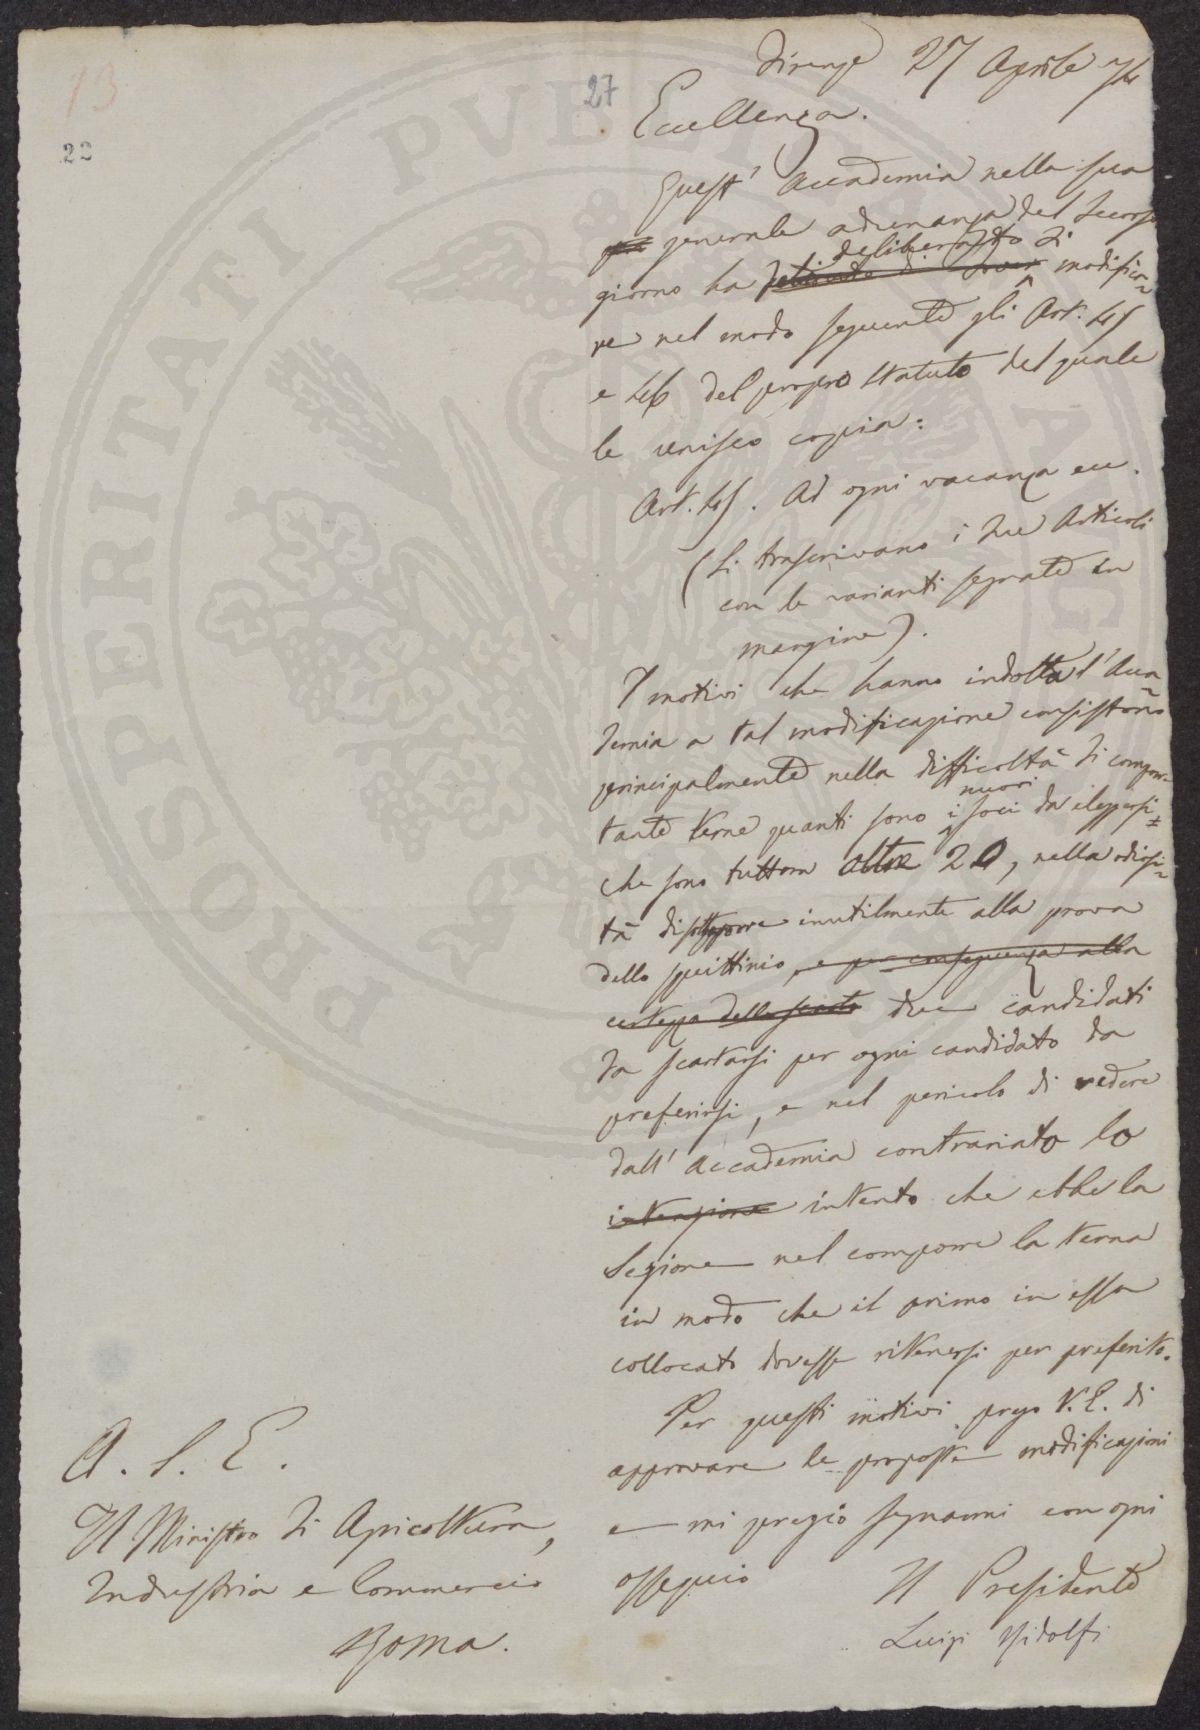 13
22
27
Firenze 27 Aprile 74
Eccellenza.
Quest' Accademia nella sua
generale adunanza del decorso
deliberato di
giorno ha modifica-
re nel modo seguente gli Art. 45
e 46 del proprio statuto del quale
le unisco copia:
Art. 45. Ad ogni vacanza ecc.
(Si trascrivano i due articoli
con le varianti segnate in
margine).
I motivi che hanno indotta l'Acca-
demia a tal modificazione consistono
principalmente nella difficoltà di compor-
nuovi
tante terne quanti sono i soci da eleggersi
che sono tuttora oltre 20, nella odiosi-
tà di sottoporre inutilmente alla prova
dello squittinio, e per conseguenza alla
certezza dello scarto due candidati
da scartarsi per ogni candidato da
preferirsi, e nel pericolo di vedere
dall' Accademia contrariato lo
intenzione intento che ebbe la
Sezione nel comporre la terna
in modo che il primo in essa
collocato dovesse ritenersi per preferito.
Per questi motivi prego V. E. di
approvare le proposte modificazioni
e mi pregio segnarmi con ogni
ossequio
Il Presidente
Luigi Ridolfi
A. S. E.
Il Ministro di Agricoltura,
Industria e Commercio
Roma.
PROSPERITATI PUBLICAE AUGENDAE